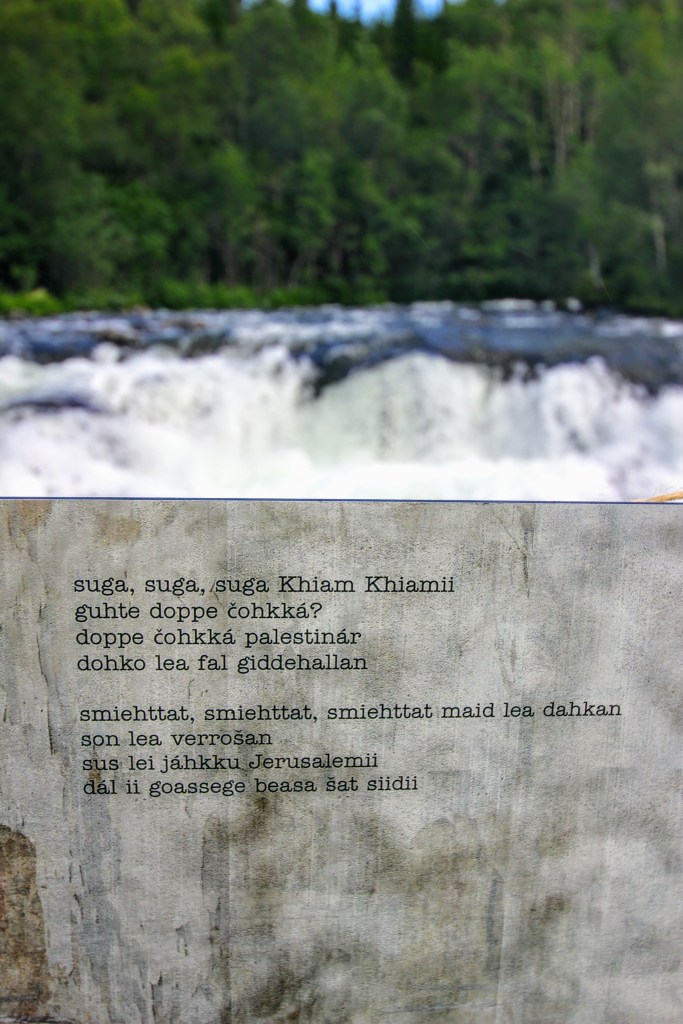 suga, suga, suga Khiam Khiamii
guhte doppe čohkká?
doppe čohkká palestinár
dohko lea fal giddehallan
smiehttat, smiehttat, smiehttat maid lea dahkan
son lea verrošan
sus lei jáhkku Jerusalemii
dál ii goassege beasa šat siidii